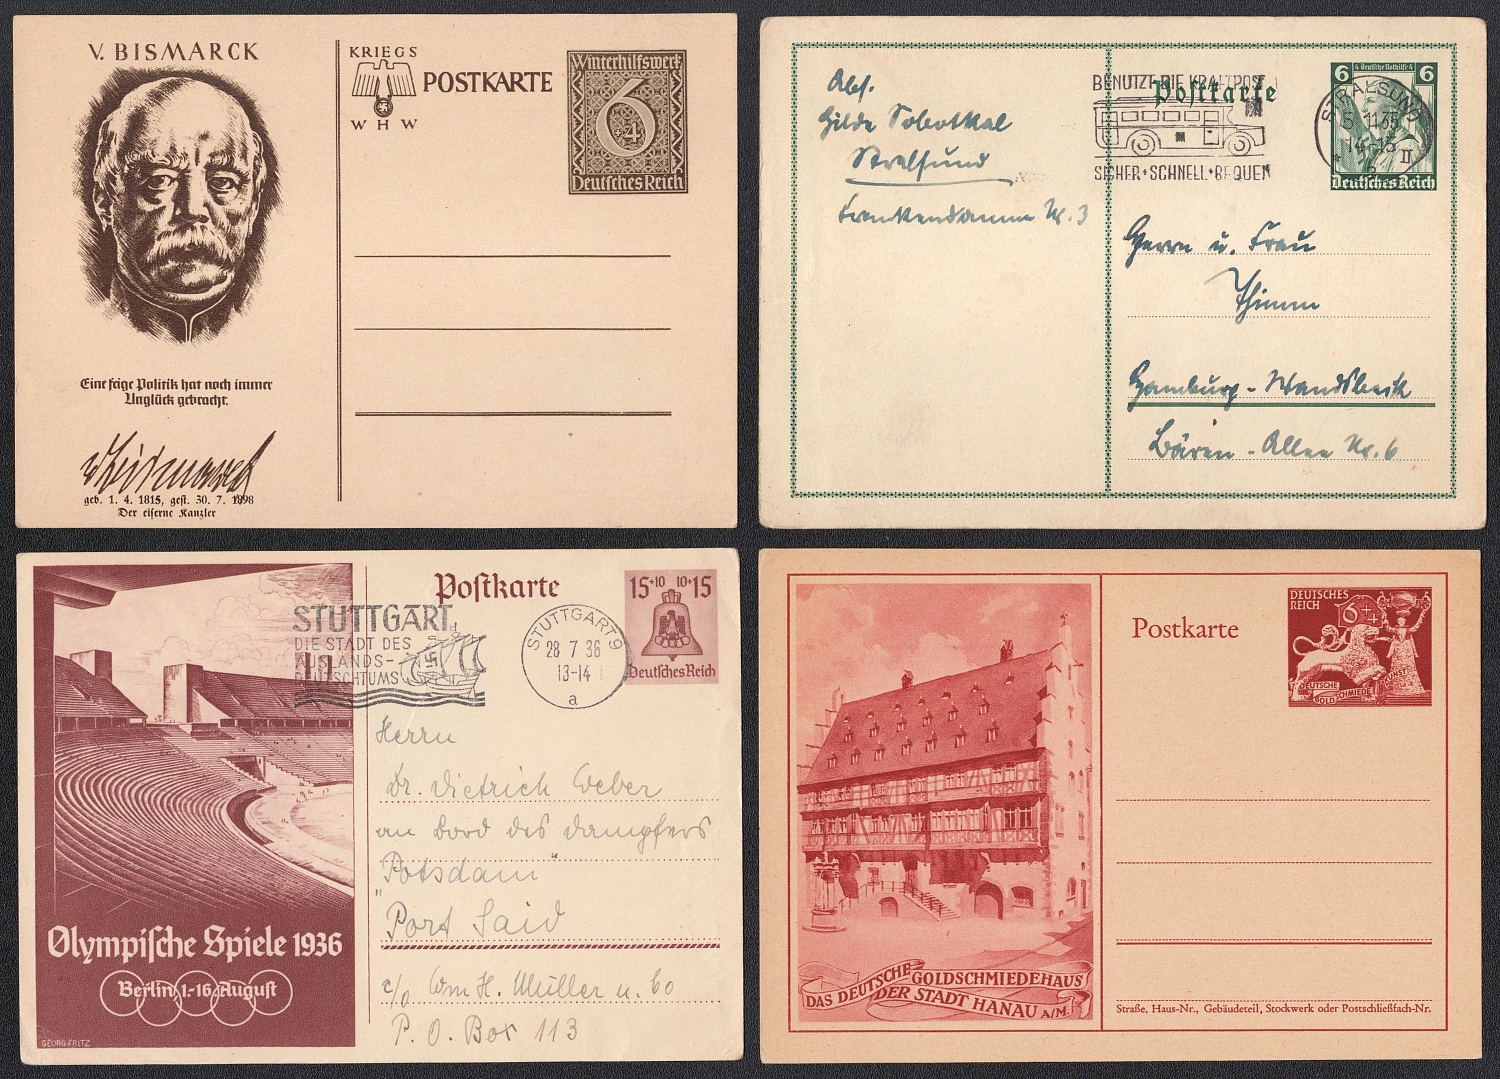 V. BISMARCK
Eine feige Politik hat noch immer
Unglück gebracht.
v Bismarck
geb. 1. 4. 1815, gest. 30. 7. 1898
Der eiserne Kanzler
KRIEGS
WHW
POSTKARTE
Winterhilfswerk
6+4
Deutsches Reich
Abs.
Hilde Sobottkal
Stralsund
Frankendamm Nr. 3
BENUTZT DIE KRAFTPOST
SICHER + SCHNELL + BEQUEM
Postkarte
6 4 Deutsche Nothilfe 4 6
Deutsches Reich
STRALSUND
5.11.35
14-15
II
Herrn u. Frau
Thimm
Hamburg-Wandsbeck
Bären-Allee Nr. 6
Olympische Spiele 1936
Berlin, 1.-16. August
GEORG FRITZ
Postkarte
STUTTGART
DIE STADT DES
AUSLANDS-
DEUTSCHTUMS
STUTTGART 9
28 7 36
13-14
a
15+10 10+15
Deutsches Reich
Herrn
Dr. Dietrich Weber
an Bord des Dampfers
"Potsdam"
Port Said
c/o Wm H. Müller u. Co
P. O. Box 113
DAS DEUTSCHE GOLDSCHMIEDEHAUS
DER STADT HANAU A/M.
Postkarte
DEUTSCHES
REICH
6+4
DEUTSCHE
GOLDSCHMIEDE
KUNST
Straße, Haus-Nr., Gebäudeteil, Stockwerk oder Postschließfach-Nr.